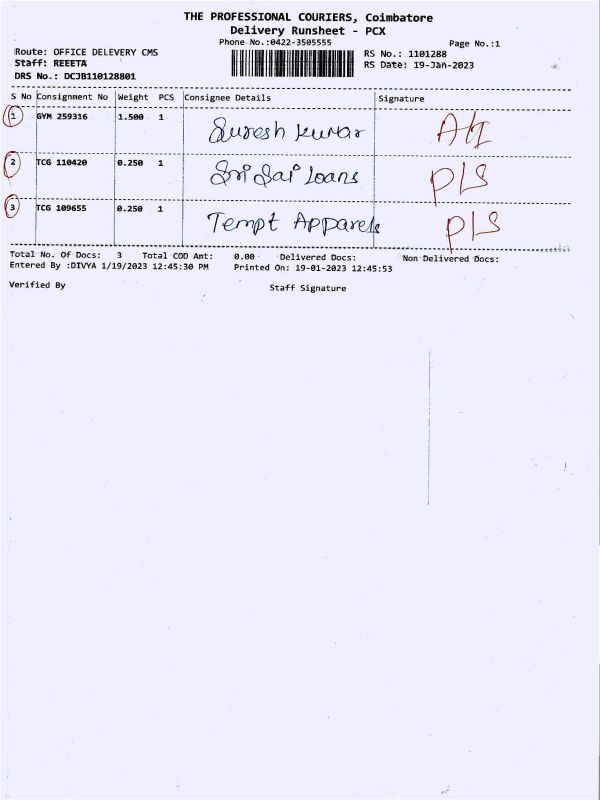 THE PROFESSIONAL COURIERS, Coimbatore
Delivery Runsheet - PCX
Phone No.:0422-3505555 Page No.:1
Route: OFFICE DELEVERY CMS RS No.: 1101288
Staff: REEETA RS Date: 19-Jan-2023
DRS No.: DCJB110128801
S No Consignment No Weight PCS Consignee Details Signature
1 GYM 259316 1.500 1 Suresh Kumar
2 TCG 110420 0.250 1 Sri Sai Loans P/S
3 TCG 109655 0.250 1 Tempt Apparels P/S
Total No. Of Docs: 3 Total COD Amt: 0.00 Delivered Docs: Non Delivered Docs:
Entered By :DIVYA 1/19/2023 12:45:30 PM Printed On: 19-01-2023 12:45:53
Verified By Staff Signature